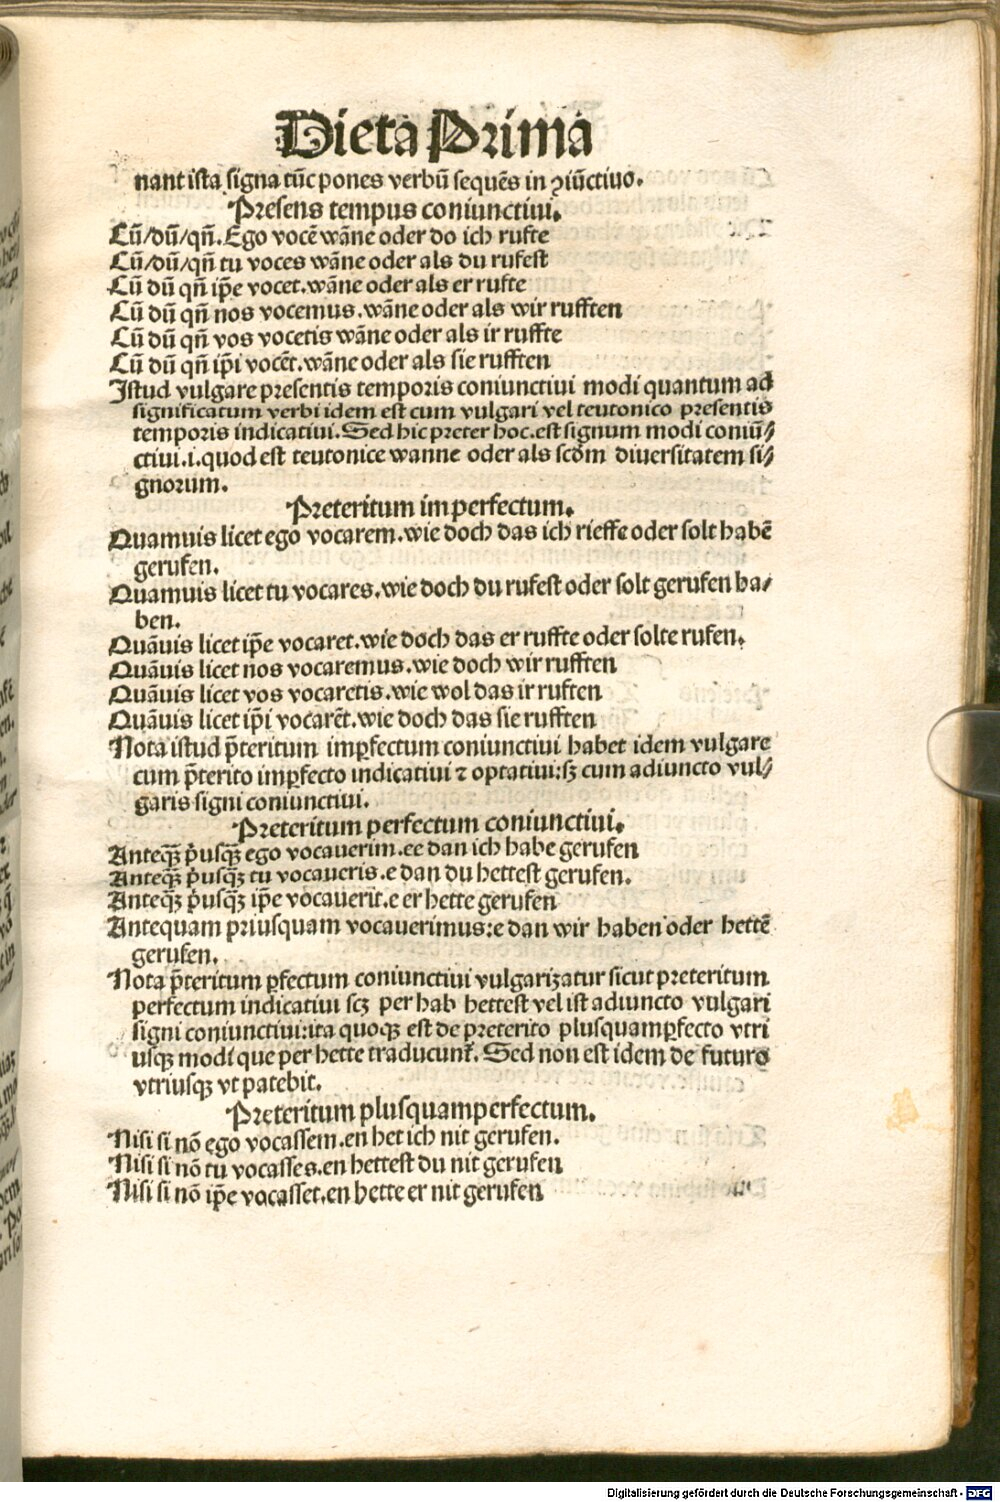 Dieta Prima
nant ista signa tūc pones verbū sequēs in ꝯiūctiuo.
Presens tempus coniunctiui.
Cū/dū/qn̄. Ego vocē wāne oder do ich rufte
Cū/dū/qn̄ tu voces wāne oder als du rufest
Cū dū qn̄ ip̄e vocet. wāne oder als er rufte
Cū dū qn̄ nos vocemus. wāne oder als wir rufften
Cū dū qn̄ vos vocetis wāne oder als ir ruffte
Cū dū qn̄ ip̄i vocēt. wāne oder als sie rufften
Istud vulgare presentis temporis coniunctiui modi quantum ad
significatum verbi idem est cum vulgari vel teutonico presentis
temporis indicatiui. Sed hic preter hoc. est signum modi coniū⸗
ctiui. i. quod est teutonice wanne oder als scd̄m diuersitatem si⸗
gnorum.
Preteritum imperfectum.
Quamuis licet ego vocarem. wie doch das ich rieffe oder solt habē
gerufen.
Quamuis licet tu vocares. wie doch du rufest oder solt gerufen ha⸗
ben.
Quāuis licet ip̄e vocaret. wie doch das er ruffte oder solte rufen.
Quāuis licet nos vocaremus. wie doch wir rufften
Quāuis licet vos vocaretis. wie wol das ir ruften
Quāuis licet ip̄i vocarēt. wie doch das sie rufften
Nota istud p̄teritum imꝑfectum coniunctiui habet idem vulgare
cum p̄terito imꝑfecto indicatiui ⁊ optatiui: sꝫ cum adiuncto vul⸗
garis signi coniunctiui.
Preteritum perfectum coniunctiui.
Anteqꝫ̄ p̓usqꝫ̄ ego vocauerim. ee dan ich habe gerufen
Anteqꝫ̄ p̓usqꝫ̄ tu vocaueris. e dan du hettest gerufen.
Anteqꝫ̄ p̓usqꝫ̄ ip̄e vocauerit. e er hette gerufen
Antequam priusquam vocauerimus: e dan wir haben oder hettē
gerufen.
Nota p̄teritum ꝑfectum coniunctiui vulgarizatur sicut preteritum
perfectum indicatiui scꝫ per hab hettest vel ist adiuncto vulgari
signi coniunctiui: ita quoqꝫ est de preterito plusquamꝑfecto vtri
usqꝫ modi que per hette traducunt᷑. Sed non est idem de futuro
vtriusqꝫ vt patebit.
Preteritum plusquamperfectum.
Nisi si nō ego vocassem. en het ich nit gerufen.
Nisi si nō tu vocasses. en hettest du nit gerufen
Nisi si nō ip̄e vocasset. en hette er nit gerufen
Digitalisierung gefördert durch die Deutsche Forschungsgemeinschaft - DFG